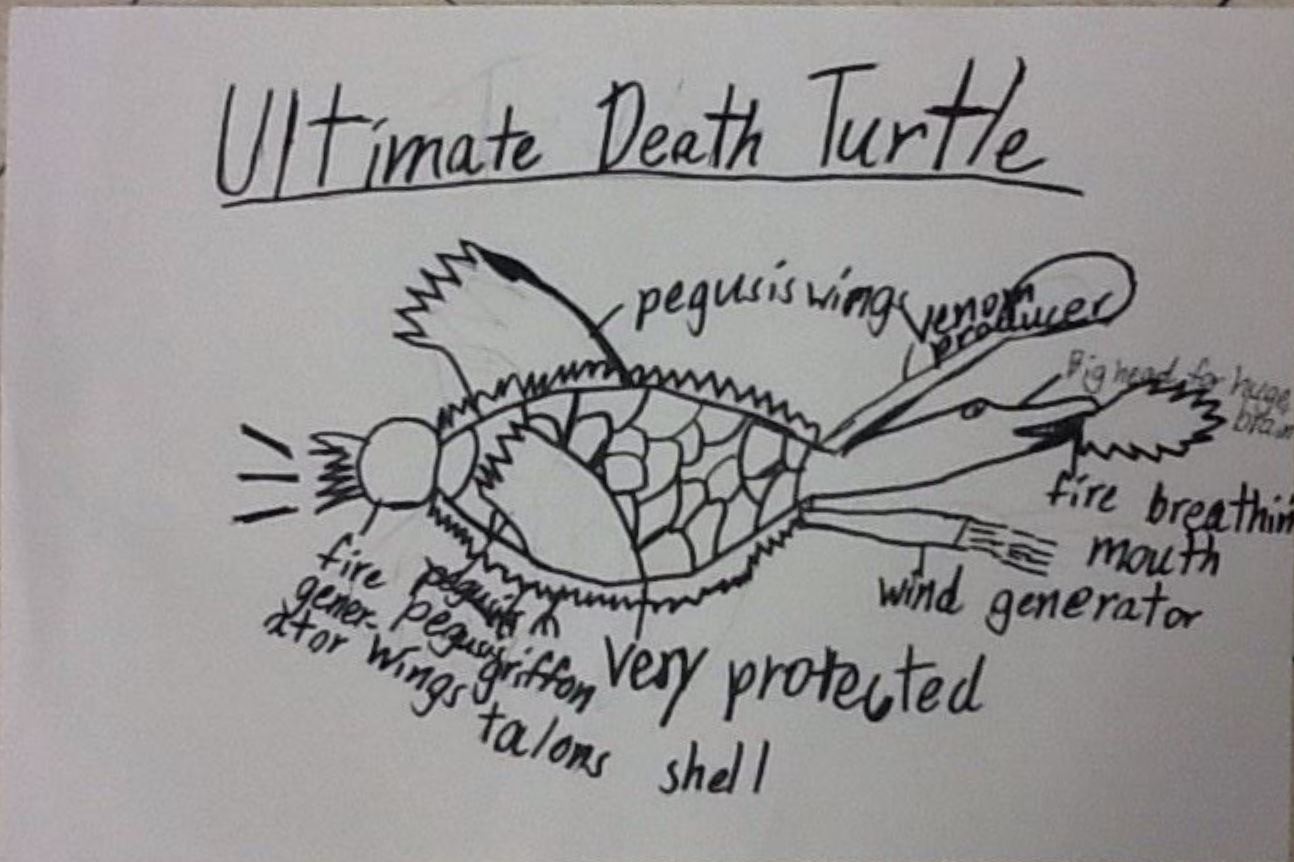 Ultimate Death Turtle
pegusis wings
venom
producer
Big head for huge
brain
fire breathin
mouth
wind generator
fire
gener-
ator
wings
griffon
talons
very protected
shell